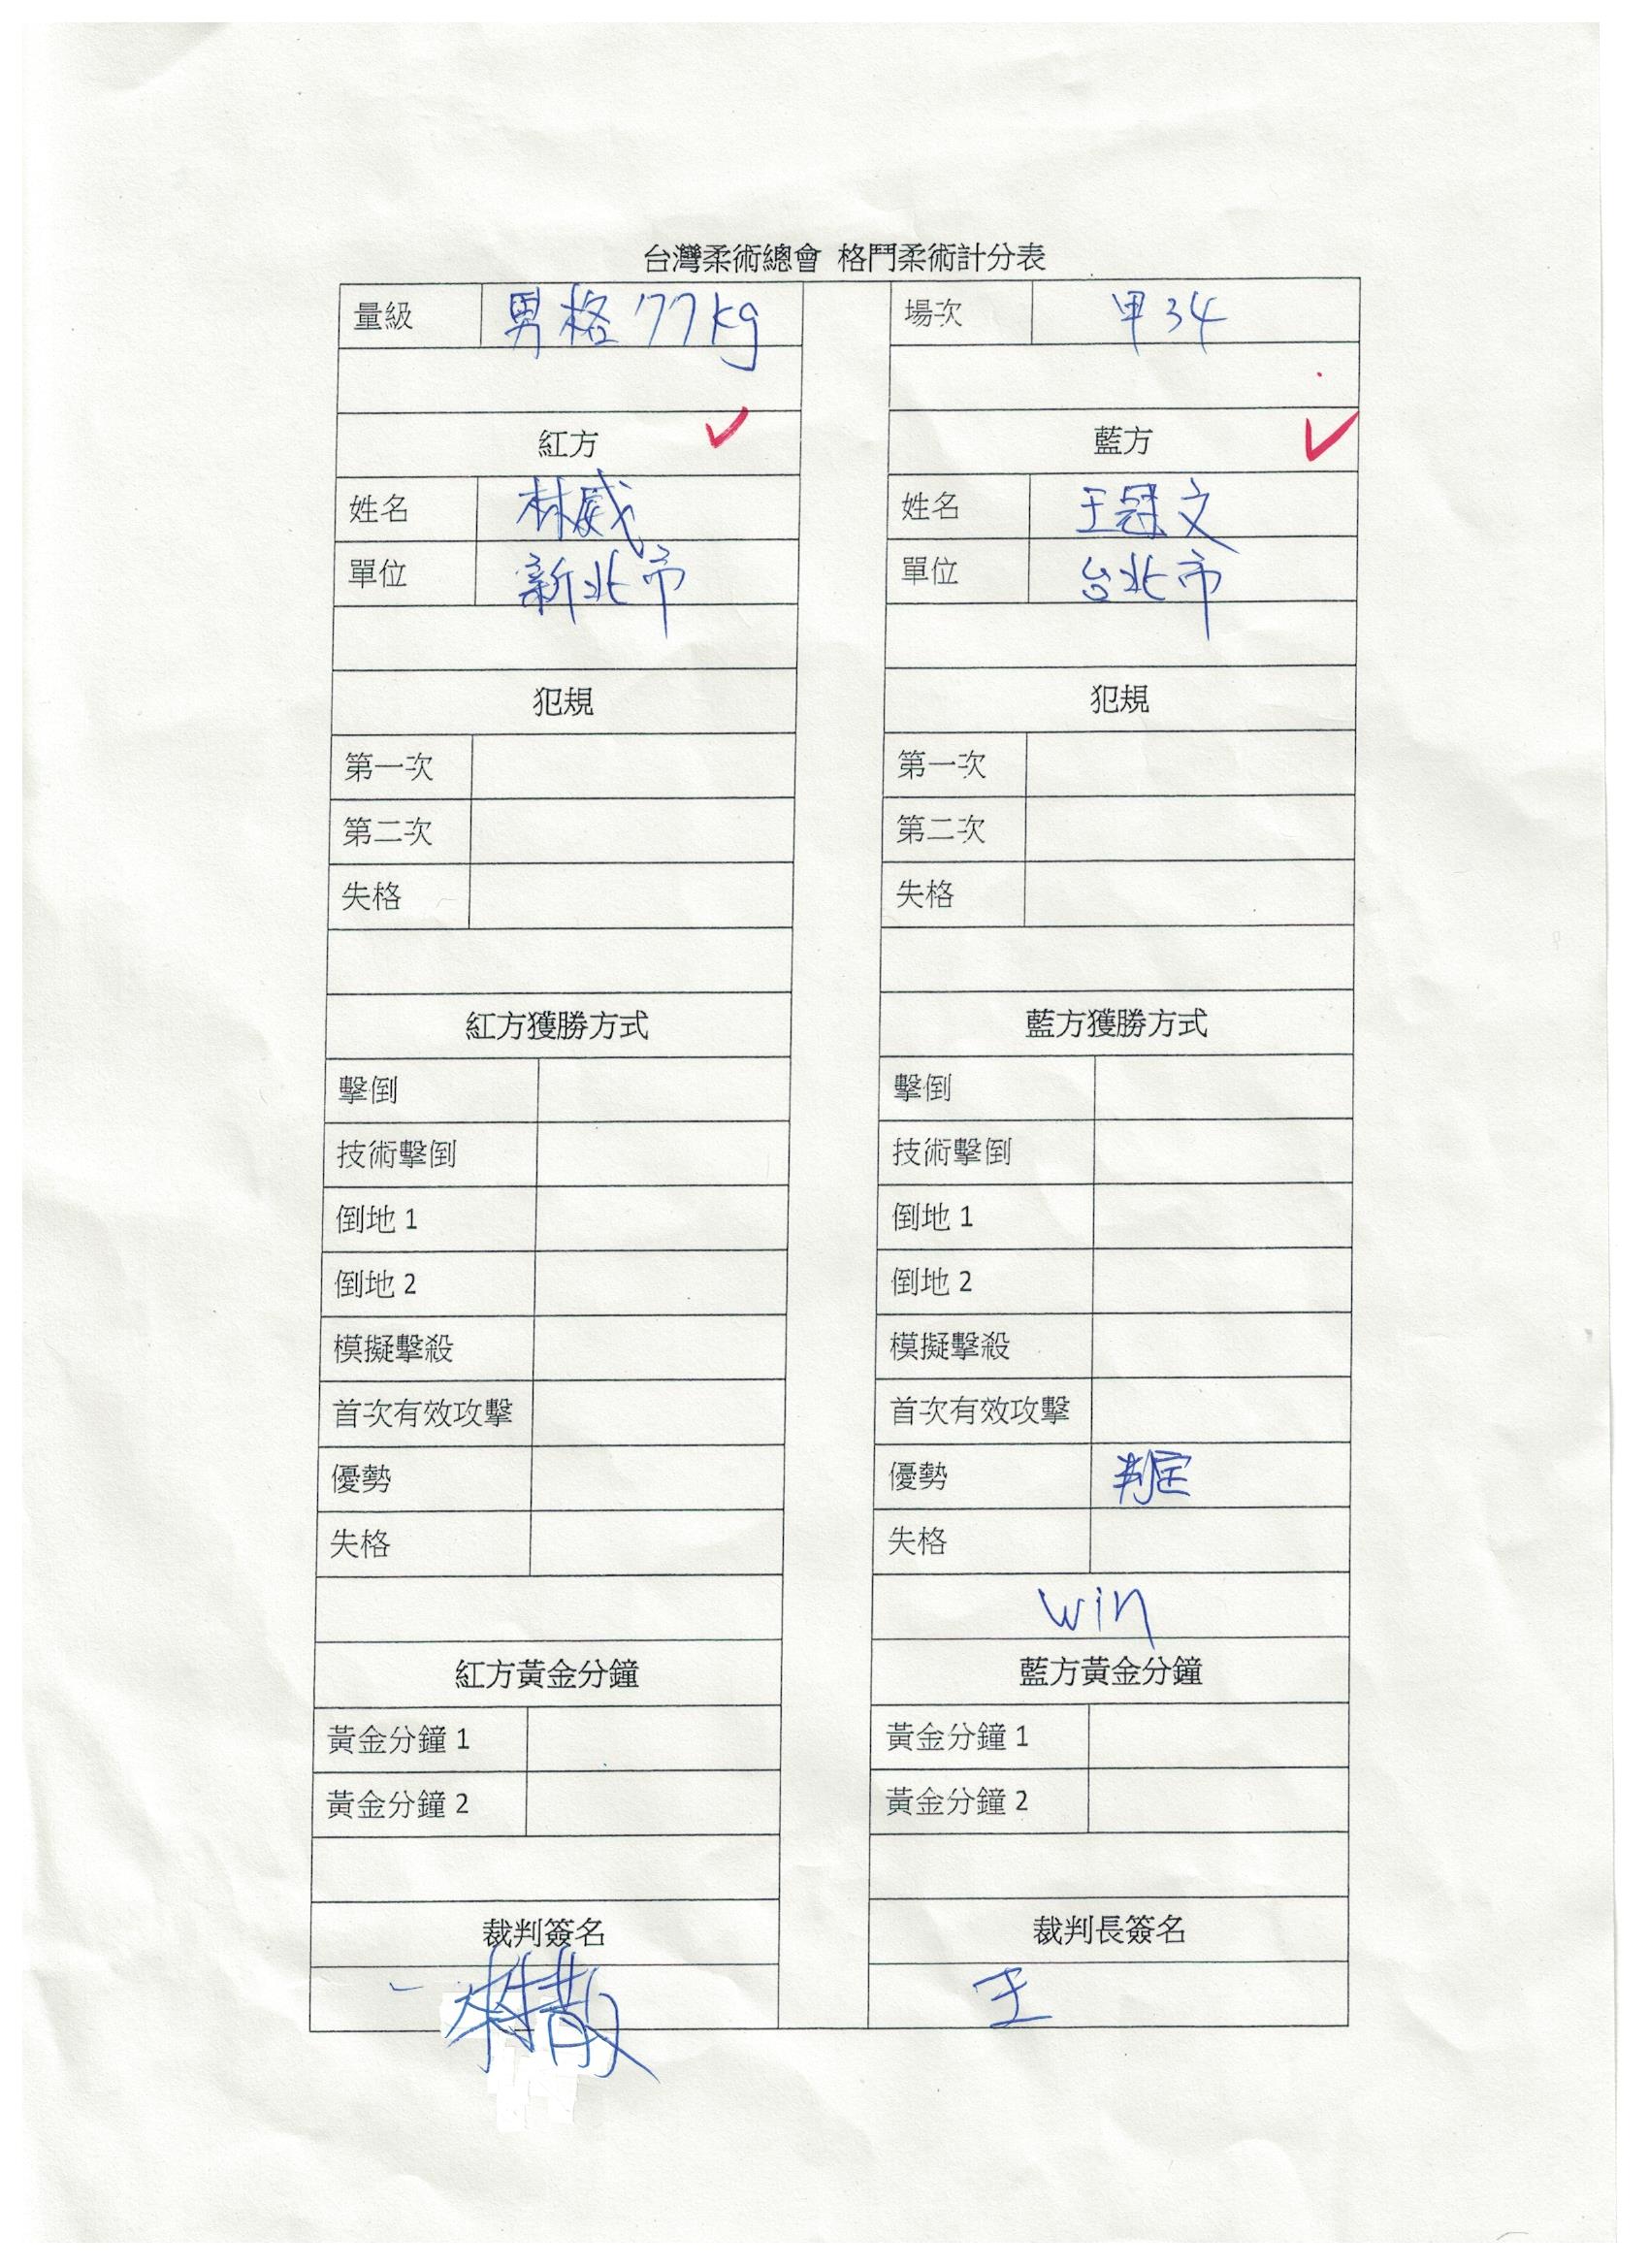 台灣柔術總會 格鬥柔術計分表
量級 男格 77kg 場次 甲34
紅方 ✓ 藍方 ✓
姓名 林威 姓名 王冠文
單位 新北市 單位 台北市
犯規 犯規
第一次 第一次
第二次 第二次
失格 失格
紅方獲勝方式 藍方獲勝方式
擊倒 擊倒
技術擊倒 技術擊倒
倒地 1 倒地 1
倒地 2 倒地 2
模擬擊殺 模擬擊殺
首次有效攻擊 首次有效攻擊
優勢 優勢 判定
失格 失格
win
紅方黃金分鐘 藍方黃金分鐘
黃金分鐘 1 黃金分鐘 1
黃金分鐘 2 黃金分鐘 2
裁判簽名 裁判長簽名
王